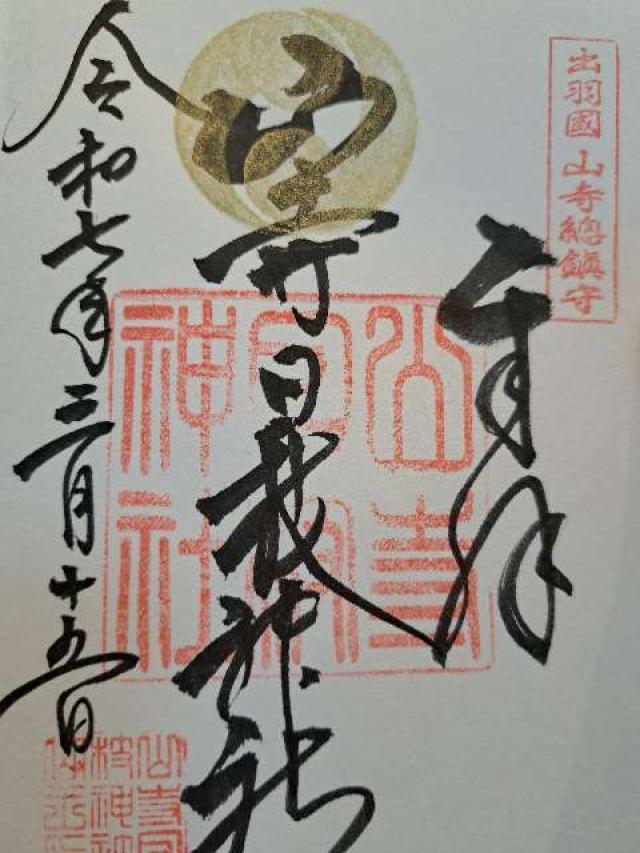 出羽國 山寺總鎮守
奉拝
山寺日枝神社
山寺
日枝
神社
令和七年三月十五日